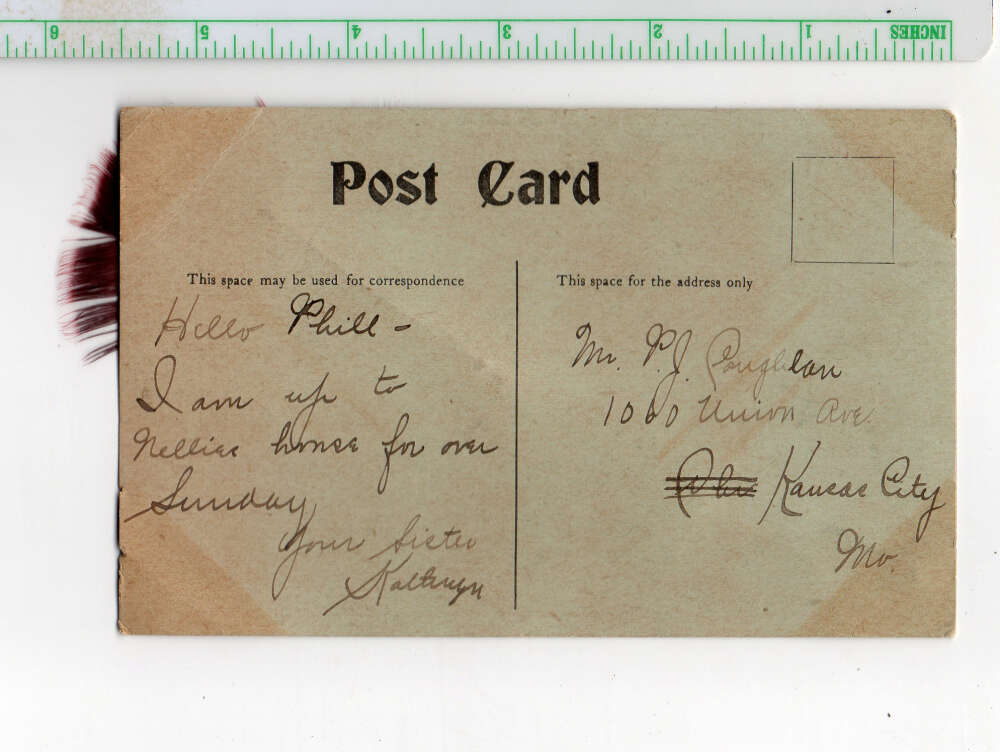 INCHES
1
2
3
4
5
6
Post Card
This space may be used for correspondence
This space for the address only
Hello Phill -
I am up to
Nellies house for over
Sunday
Your Sister
Kathryn
Mr. P. J. Coughlan
1060 Union Ave.
Kansas City
Mo.